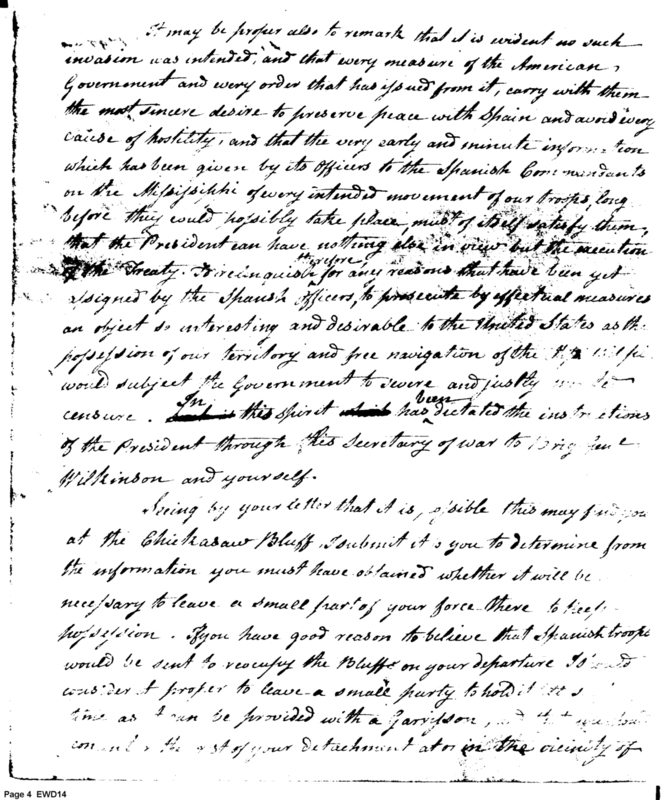 It may be proper also to remark that it is evident no such
invasion was intended, and that every measure of the American
Government and every order that has issued from it, carry with them
the most sincere desire to preserve peace with Spain and avoid every
cause of hostility, and that the very early and minute information
which has been given by its Officers to the Spanish Commandants
on the Mississippi of every intended movement of our troops, long
before they could possibly take place, must of itself satisfy them,
that the President can have nothing else in view but the execution
of the Treaty. To relinquish therefore for any reasons that have been yet
assigned by the Spanish Officers, to prosecute by effectual measures
an object so interesting and desirable to the United States as the
possession of our territory and free navigation of the
would subject the Government to severe and justly
censure. In this spirit has been dictated the instructions
of the President through his Secretary of war to Brig Genl
Wilkinson and yourself.
Seeing by your letter that it is possible this may find you
at the Chickasaw Bluff, I submit it to you to determine from
the information you must have obtained whether it will be
necessary to leave a small part of your force there to keep
possession. If you have good reason to believe that Spanish troops
would be sent to reoccupy the Bluff on your departure I should
consider it proper to leave a small party to hold it
time as it can be provided with a Garrisson, and that
the rest of your detachment at or in the vicinity of
Page 4 EWD14